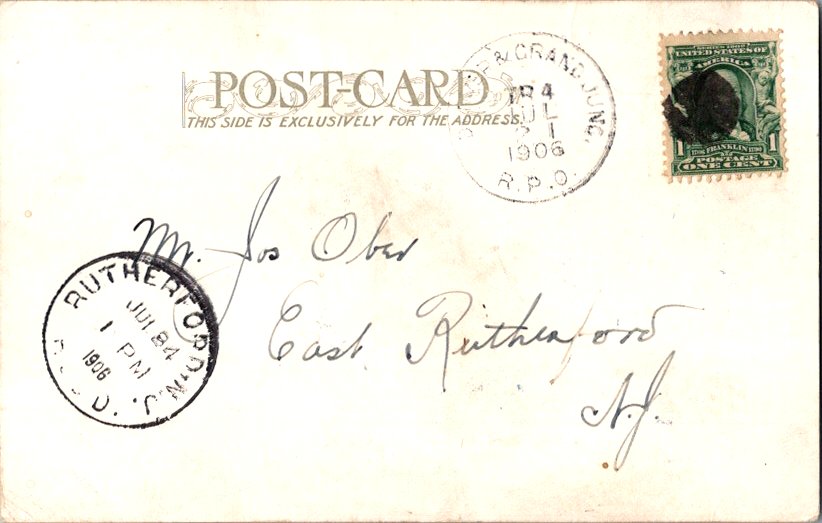 POST-CARD
THIS SIDE IS EXCLUSIVELY FOR THE ADDRESS.
& GRAND JUNC.
TR 4
JUL
21
1906
R.P.O.
SERIES 1902
UNITED STATES OF
AMERICA
1 FRANKLIN 1
POSTAGE
ONE CENT
Mr. Jos Ober
East Rutherford
N.J.
RUTHERFORD N.J.
JUL 24
1 PM
1906